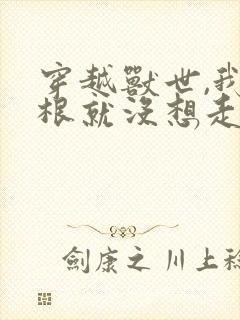 穿越獸世,我
根就沒想走
劍康之 川上稔